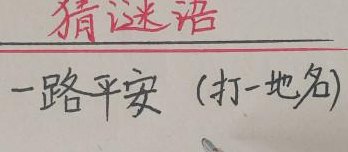 猜谜语
一路平安（打一地名）